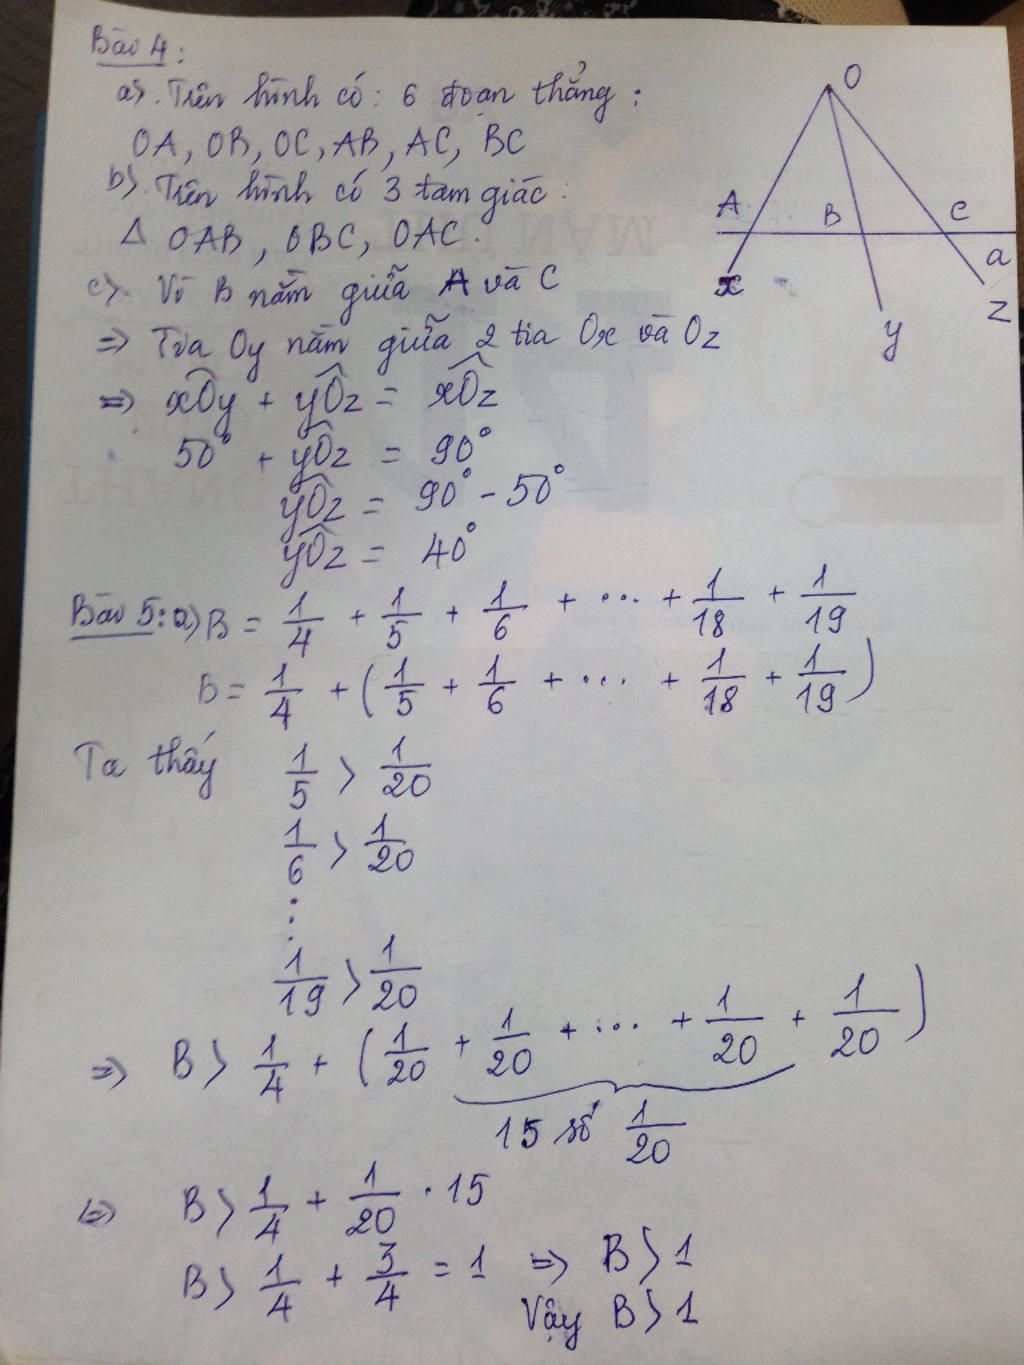 Bài 4:
a). Trên hình có: 6 đoạn thẳng:
OA, OB, OC, AB, AC, BC
b). Trên hình có 3 tam giác:
Δ OAB, OBC, OAC.
c). Vì B nằm giữa A và C
=> Tia Oy nằm giữa 2 tia Ox và Oz
=> xÔy + yÔz = xÔz
50° + yÔz = 90°
yÔz = 90° - 50°
yÔz = 40°
O
A B C
a
x
y
z
Bài 5: a) B = 1/4 + 1/5 + 1/6 + ... + 1/18 + 1/19
B = 1/4 + (1/5 + 1/6 + ... + 1/18 + 1/19)
Ta thấy 1/5 > 1/20
1/6 > 1/20
⋮
1/19 > 1/20
=> B > 1/4 + (1/20 + 1/20 + ... + 1/20 + 1/20)
15 số 1/20
=> B > 1/4 + 1/20 . 15
B > 1/4 + 3/4 = 1 => B > 1
Vậy B > 1